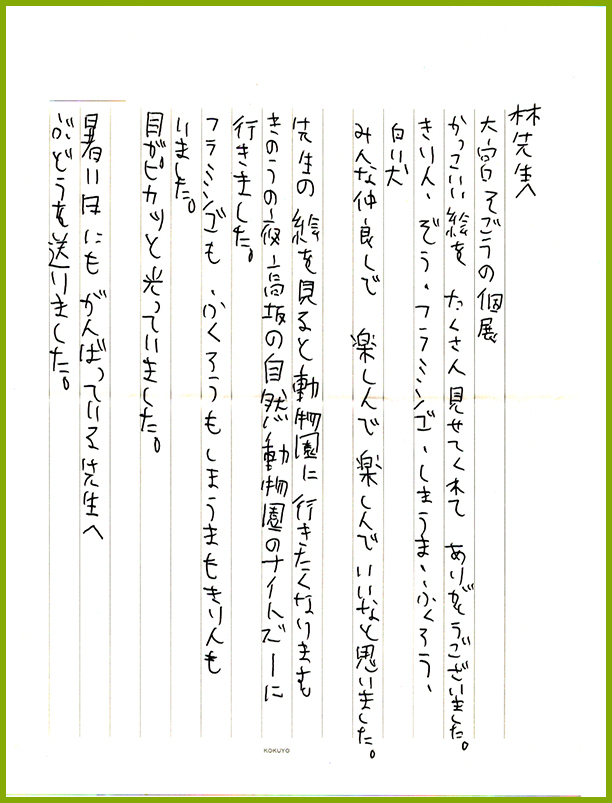 林先生へ
大宮そごうの個展
かっこいい絵を たくさん見せてくれて ありがとうございました。
きりん、ぞう、フラミンゴ、しまうま、ふくろう、
白い犬
みんな仲良しで 楽しんで 楽しんでいいなと思いました。
先生の 絵を見ると動物園に 行きたくなります
きのうの夜高坂の自然動物園のナイトズーに
行きました。
フラミンゴも ふくろうもしまうまもきりんも
いました。
目がピカッと光っていました。
暑い日にもがんばっている先生へ
ぶどうを送りました。
KOKUYO